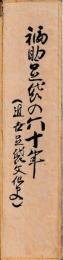 福助足袋の六十年
(近世足袋文化史)